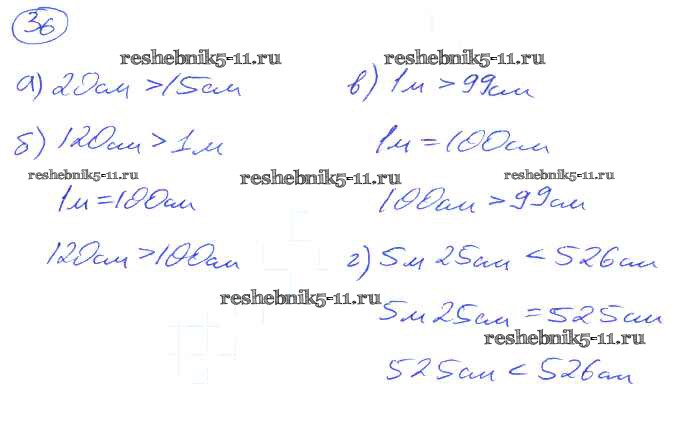 36
reshebnik5-11.ru
reshebnik5-11.ru
а) 20см > 15см
б) 120см > 1м
reshebnik5-11.ru
1м = 100см
120см > 100см
reshebnik5-11.ru
reshebnik5-11.ru
в) 1м > 99см
1м = 100см
reshebnik5-11.ru
100см > 99см
г) 5м 25см < 526см
5м 25см = 525см
reshebnik5-11.ru
525см < 526см